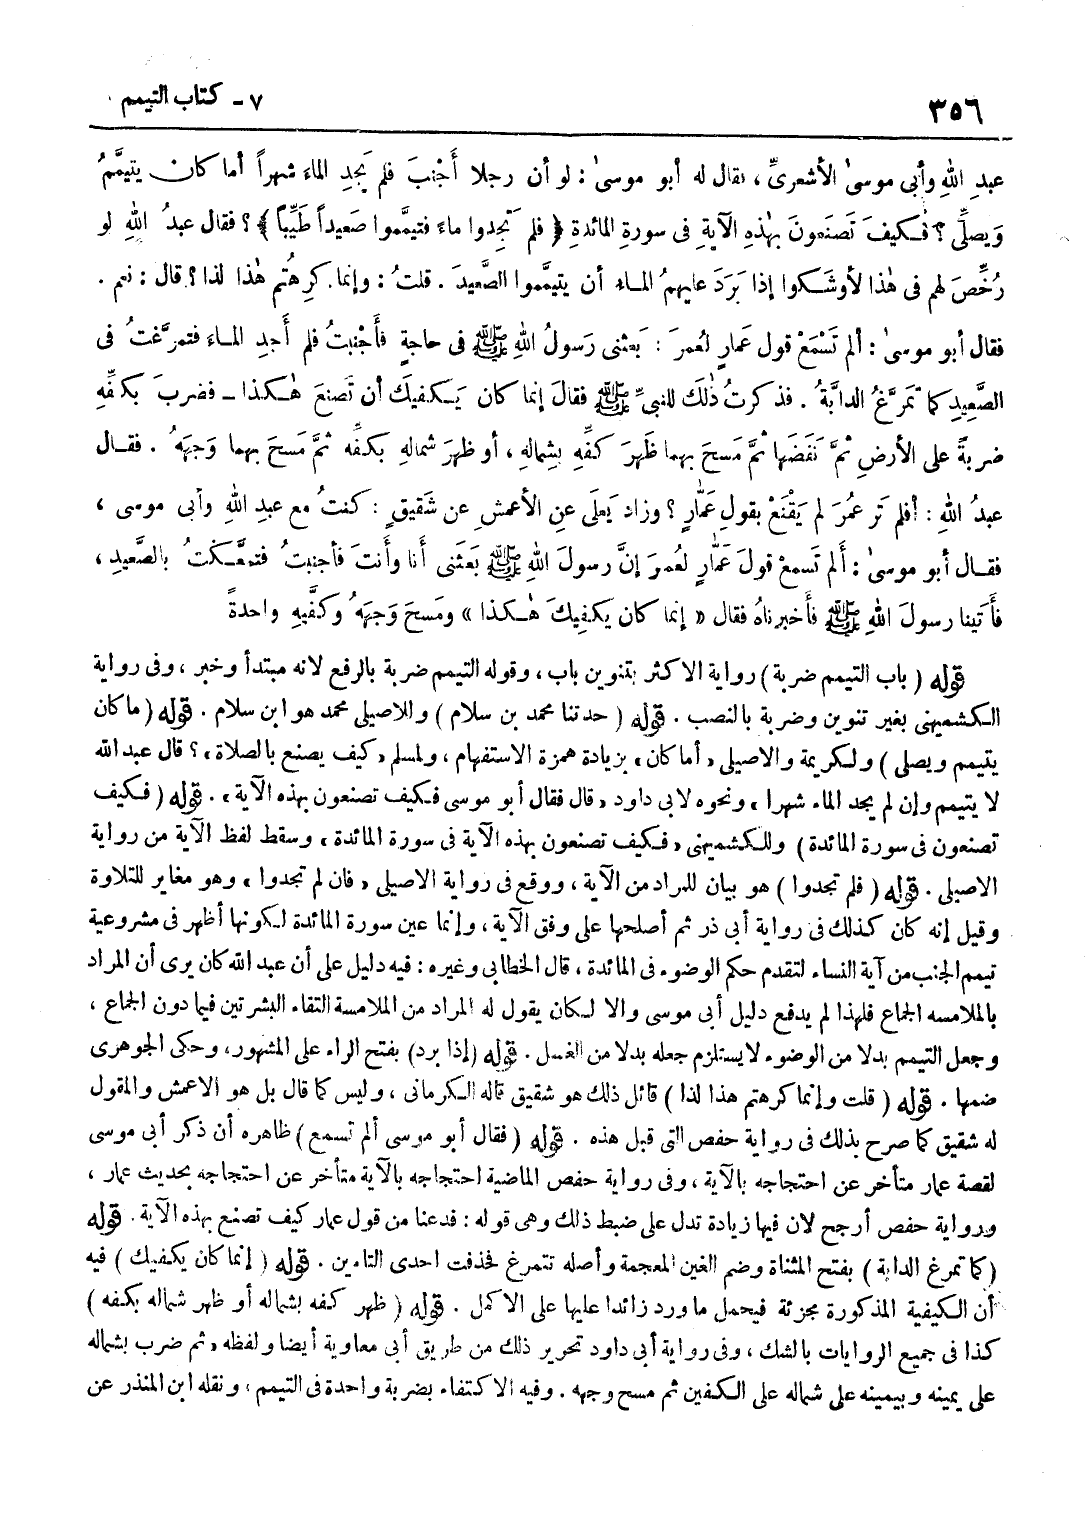 ٣٥٦
٧ - كتاب التيمم
عبدِ اللهِ وأبى موسىٰ الأشعرىِّ ، فقال له أبو موسىٰ : لو أن رجلا أَجْنبَ فلم يَجدِ الماءَ شهراً أما كان يتيمَّمُ
وَيصلِّى ؟ فكيفَ تَصنَعونَ بهٰذهِ الآيةِ فى سورةِ المائدةِ ﴿ فلم تَجِدوا ماءً فتيمَّموا صَعيداً طَيِّباً ﴾ ؟ فقال عبدُ اللهِ لو
رُخِّصَ لهم فى هٰذا لأوشَكوا إذا بَرَدَ عليهمُ الماء أن يتيمَّموا الصَّعيدَ . قلتُ : وإنما كرِهتُم هٰذا لذا ؟ قال : نعم .
فقال أبو موسىٰ : ألم تَسْمَعْ قول عمارٍ لعُمرَ : بَعثنى رَسولُ اللهِ ﷺ فى حاجةٍ فأجْنبتُ فلم أَجدِ الماءَ فتمرَّغتُ فى
الصَّعِيدِ كما تمَرَّغُ الدابَّةُ . فذكرتُ ذٰلكَ للنبىِّ ﷺ فقالَ إنما كان يَكفيكَ أن تَصنعَ هٰكذا ـ فضربَ بكفِّهِ
ضربةً على الأرضِ ثمَّ نَفَضَها ثمَّ مَسحَ بهما ظَهرَ كفِّهِ بشِمالهِ ، أو ظهرَ شمالهِ بكفِّه ثمَّ مَسحَ بهما وَجهَهُ . فقال
عبدُ اللهِ : أفلم تَر عمُرَ لم يَقْنَعْ بقولِ عَمّارٍ ؟ وزاد يَعلَى عنِ الأعمشِ عن شَقيقٍ : كنتُ مع عبدِ اللهِ وأبى موسى ،
فقال أبو موسىٰ : أَلم تَسمعْ قولَ عَمّارٍ لعُمرَ إنَّ رسولَ اللهِ ﷺ بَعَثنى أَنا وأَنتَ فأجنبتُ فتمعَّكتُ بالصَّعيدِ ،
فأَتينا رسولَ اللهِ ﷺ فأخبرناهُ فقال « إنما كان يَكفِيكَ هٰكذا » ومَسحَ وَجهَهُ وكفَّيهِ واحدةً
قوله ( باب التيمم ضربة ) رواية الاكثر بتنوين باب ، وقوله التيمم ضربة بالرفع لانه مبتدأ وخبر ، وفى رواية
الكشميهنى بغير تنوين وضربة بالنصب . قوله ( حدثنا محمد بن سلام ) وللاصيلى محمد هو ابن سلام . قوله ( ما كان
يتيمم ويصلى ) ولكريمة والاصيلى « أما كان » بزيادة همزة الاستفهام ، ولمسلم « كيف يصنع بالصلاة » ؟ قال عبد الله
لا يتيمم وإن لم يجد الماء شهرا » ونحوه لابى داود « قال فقال أبو موسى فكيف تصنعون بهذه الآية » . قوله ( فكيف
تصنعون فى سورة المائدة ) وللكشميهنى « فكيف تصنعون بهذه الآية فى سورة المائدة » وسقط لفظ الآية من رواية
الاصيلى . قوله ( فلم تجدوا ) هو بيان للمراد من الآية ، ووقع فى رواية الاصيلى « فان لم تجدوا » وهو مغاير للتلاوة
وقيل إنه كان كذلك فى رواية أبى ذر ثم أصلحها على وفق الآية ، وإنما عين سورة المائدة لكونها أظهر فى مشروعية
تيمم الجنب من آية النساء لتقدم حكم الوضوء فى المائدة ، قال الخطابى وغيره : فيه دليل على أن عبد الله كان يرى أن المراد
بالملامسه الجماع فلهذا لم يدفع دليل أبى موسى والا لكان يقول له المراد من الملامسة التقاء البشرتين فيما دون الجماع ،
وجعل التيمم بدلا من الوضوء لا يستلزم جعله بدلا من الغسل . قوله (إذا برد) بفتح الراء على المشهور، وحكى الجوهرى
ضمها . قوله ( قلت وإنما كرهتم هذا لذا ) قائل ذلك هو شقيق قاله الكرمانى ، وليس كما قال بل هو الاعمش والمقول
له شقيق كما صرح بذلك فى رواية حفص التى قبل هذه . قوله ( فقال أبو موسى ألم تسمع ) ظاهره أن ذكر أبى موسى
لقصة عمار متأخر عن احتجاجه بالآية ، وفى رواية حفص الماضية احتجاجه بالآية متأخر عن احتجاجه بحديث عمار ،
ورواية حفص أرجح لان فيها زيادة تدل على ضبط ذلك وهى قوله : فدعنا من قول عمار كيف تصنع بهذه الآية . قوله
(كما تمرغ الدابة ) بفتح المثناة وضم الغين المعجمة وأصله تتمرغ فحذفت احدى التاءين . قوله ( إنما كان يكفيك ) فيه
أن الكيفية المذكورة مجزئة فيحمل ما ورد زائدا عليها على الاكمل . قوله ( ظهر كفه بشماله أو ظهر شماله بكفه )
كذا فى جميع الروايات بالشك ، وفى رواية أبى داود تحرير ذلك من طريق أبى معاوية أيضا ولفظه « ثم ضرب بشماله
على يمينه وبيمينه على شماله على الكفين ثم مسح وجهه . وفيه الاكتفاء بضربة واحدة فى التيمم ، ونقله ابن المنذر عن